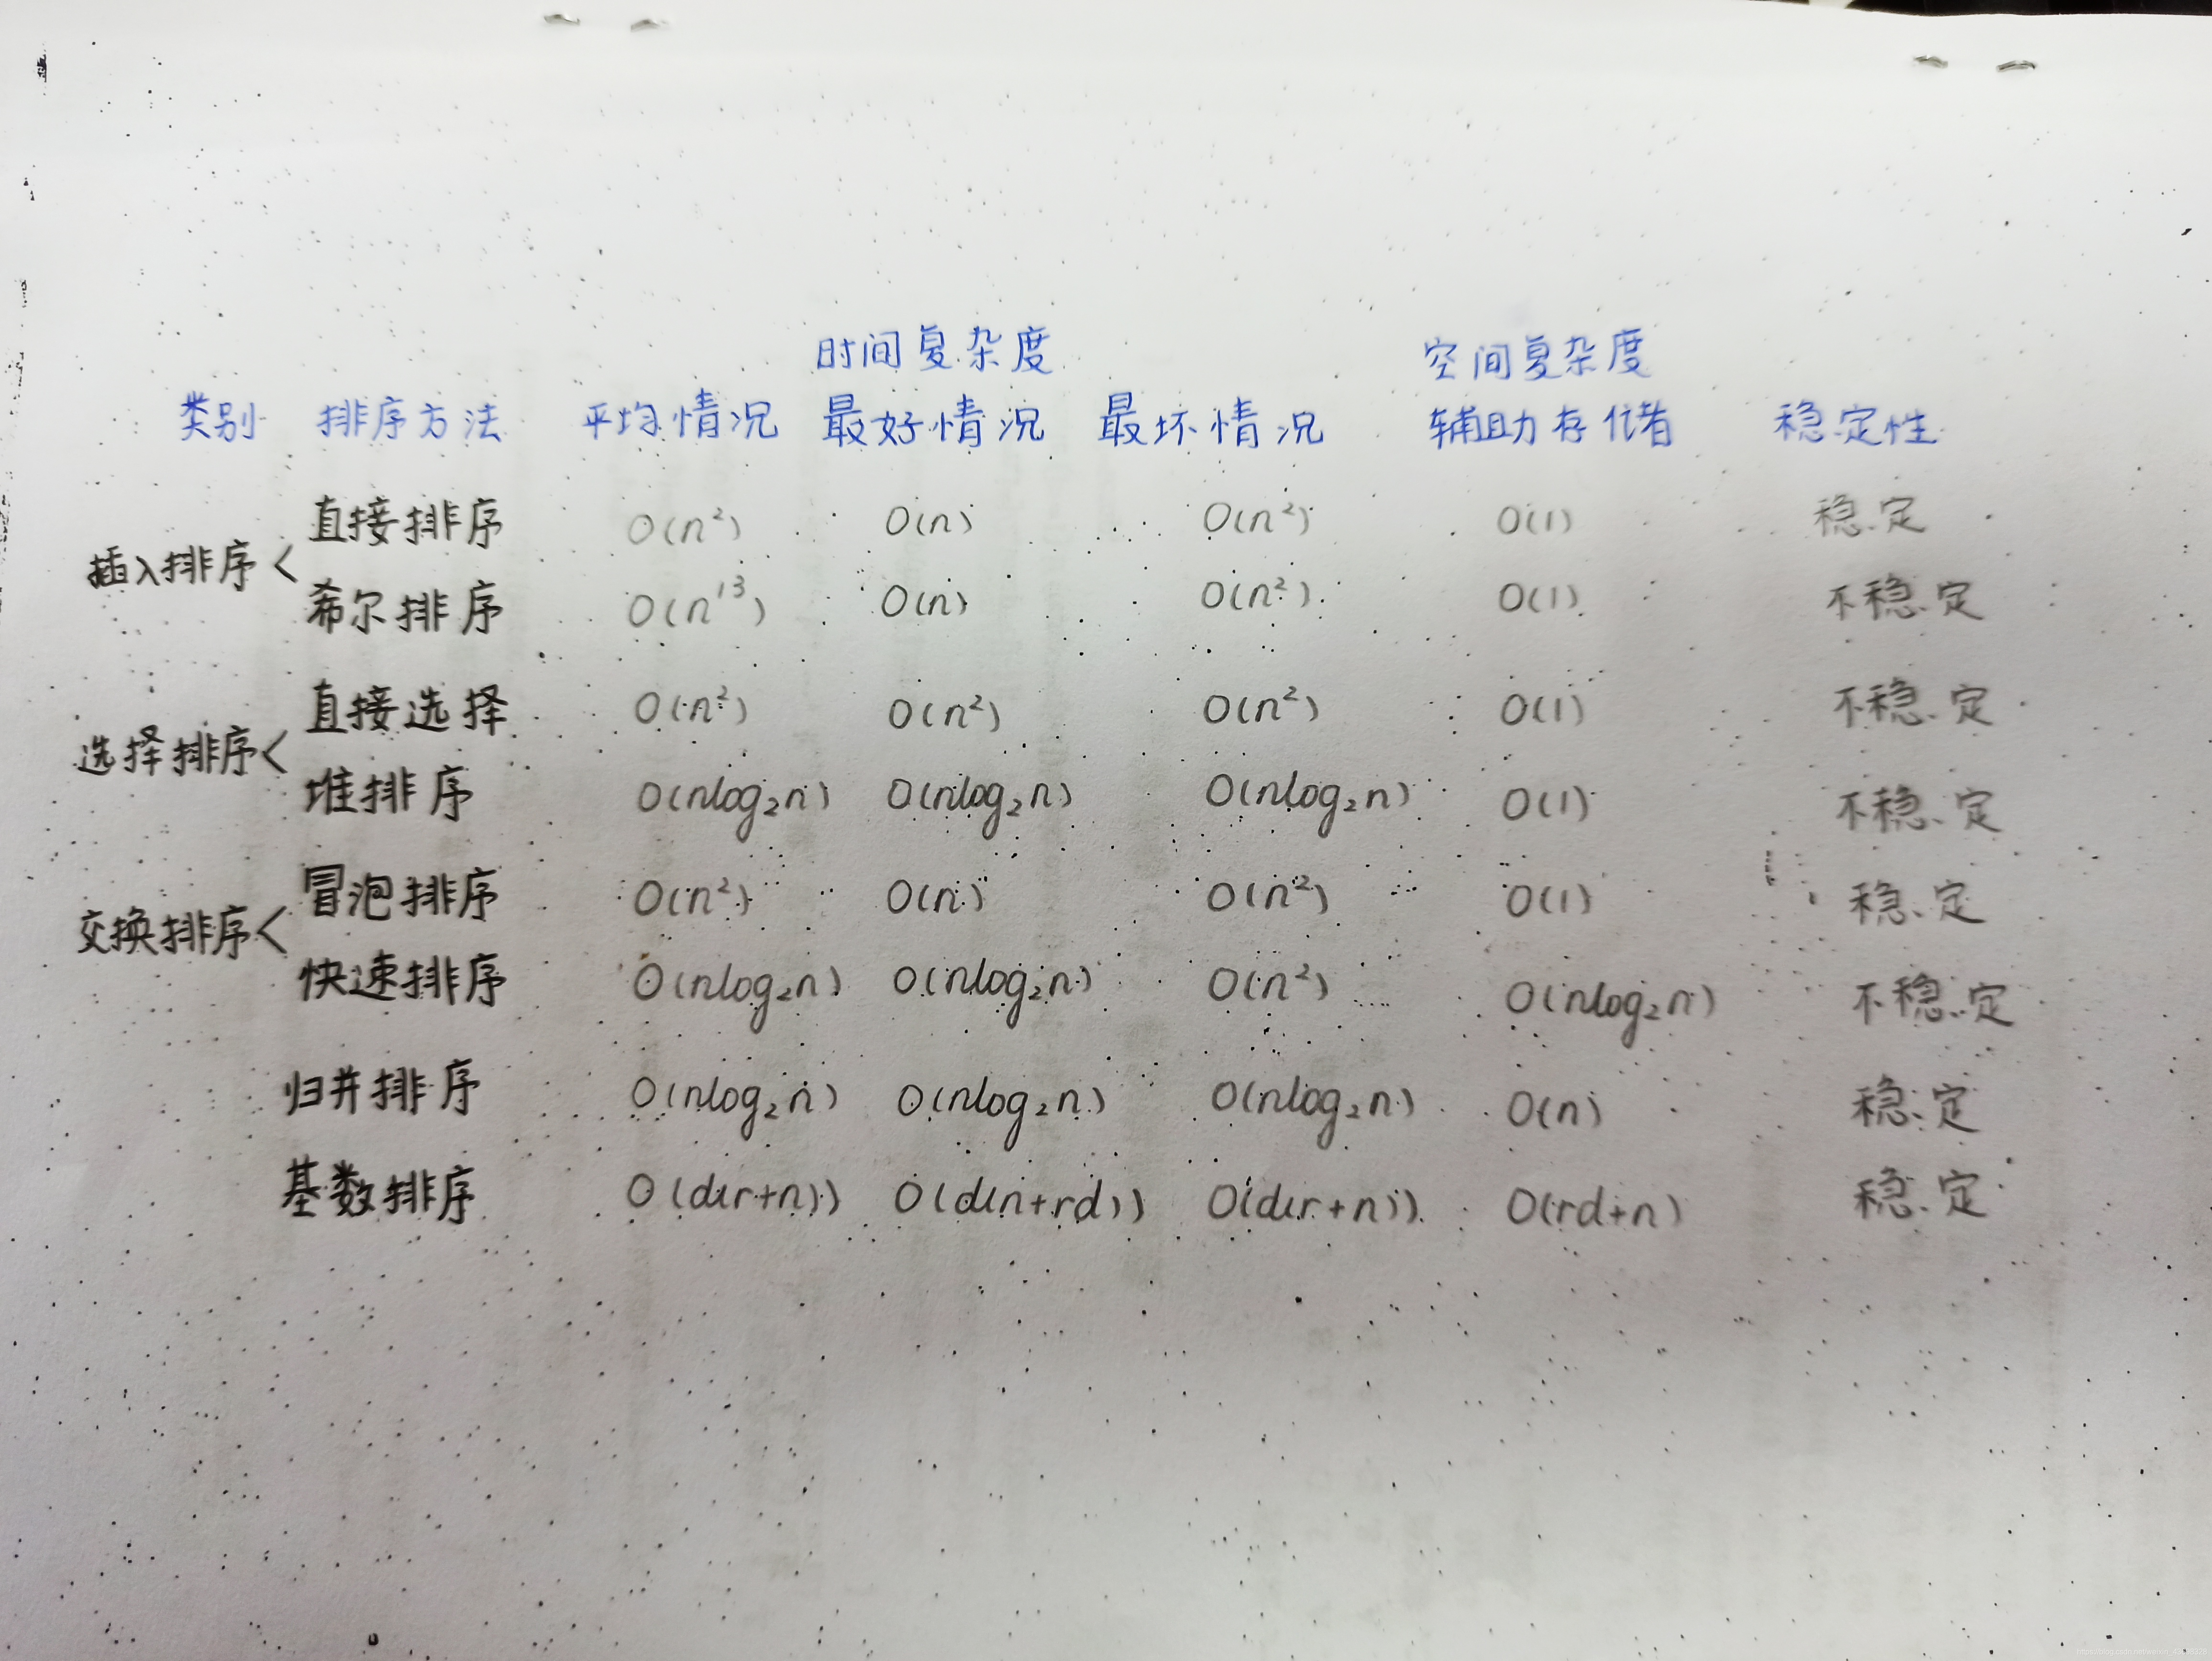 时间复杂度 空间复杂度
类别 排序方法 平均情况 最好情况 最坏情况 辅助存储 稳定性
插入排序 <
直接排序 O(n²) O(n) O(n²) O(1) 稳定
希尔排序 O(n¹³) O(n) O(n²) O(1) 不稳定
选择排序 <
直接选择 O(n²) O(n²) O(n²) O(1) 不稳定
堆排序 O(nlog₂n) O(nlog₂n) O(nlog₂n) O(1) 不稳定
交换排序 <
冒泡排序 O(n²) O(n) O(n²) O(1) 稳定
快速排序 O(nlog₂n) O(nlog₂n) O(n²) O(nlog₂n) 不稳定
归并排序 O(nlog₂n) O(nlog₂n) O(nlog₂n) O(n) 稳定
基数排序 O(d(r+n)) O(d(n+rd)) O(d(r+n)) O(rd+n) 稳定